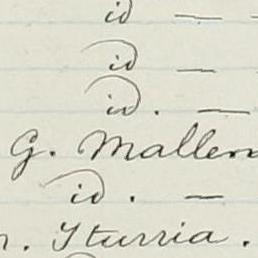 id —
id —
id. —
G. Mallen
id. —
n. Iturria.